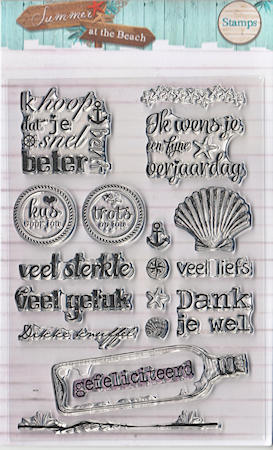 Summer
at the Beach
Stamps
k hoop
dat je
snel
beter
bent
Ik wens je
een fijne
verjaardag
kus
voor jou
trots
op jou
veel sterkte
veel liefs
veel geluk
Dank
je wel
Dikke knuffel
gefeliciteerd